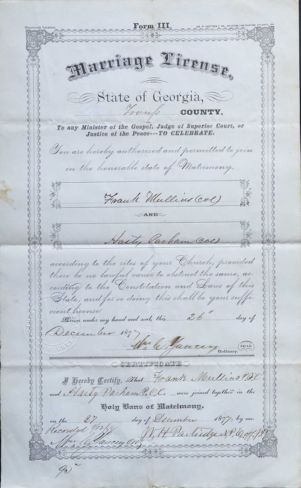 Form III.
Marriage License.
State of Georgia,
COUNTY.
To any Minister of the Gospel, Judge of Superior Court, or
Justice of the Peace---TO CELEBRATE.
You are hereby authorized and permitted to join
in the honorable state of Matrimony,
Frank Mullins (col)
AND
Hasty Parham (col)
according to the rites of your Church, provided
there be no lawful cause to obstruct the same, ac-
cording to the Constitution and Laws of this
State, and for so doing this shall be your suffi-
cient license.
Given under my hand and seal, this 26" day of
December 1877
Ordinary.
CERTIFICATE
I Hereby Certify, That Frank Mullins
and Hasty Parham were joined together in the
Holy Bans of Matrimony,
on the 27 day of December 1877, by me.
Recorded